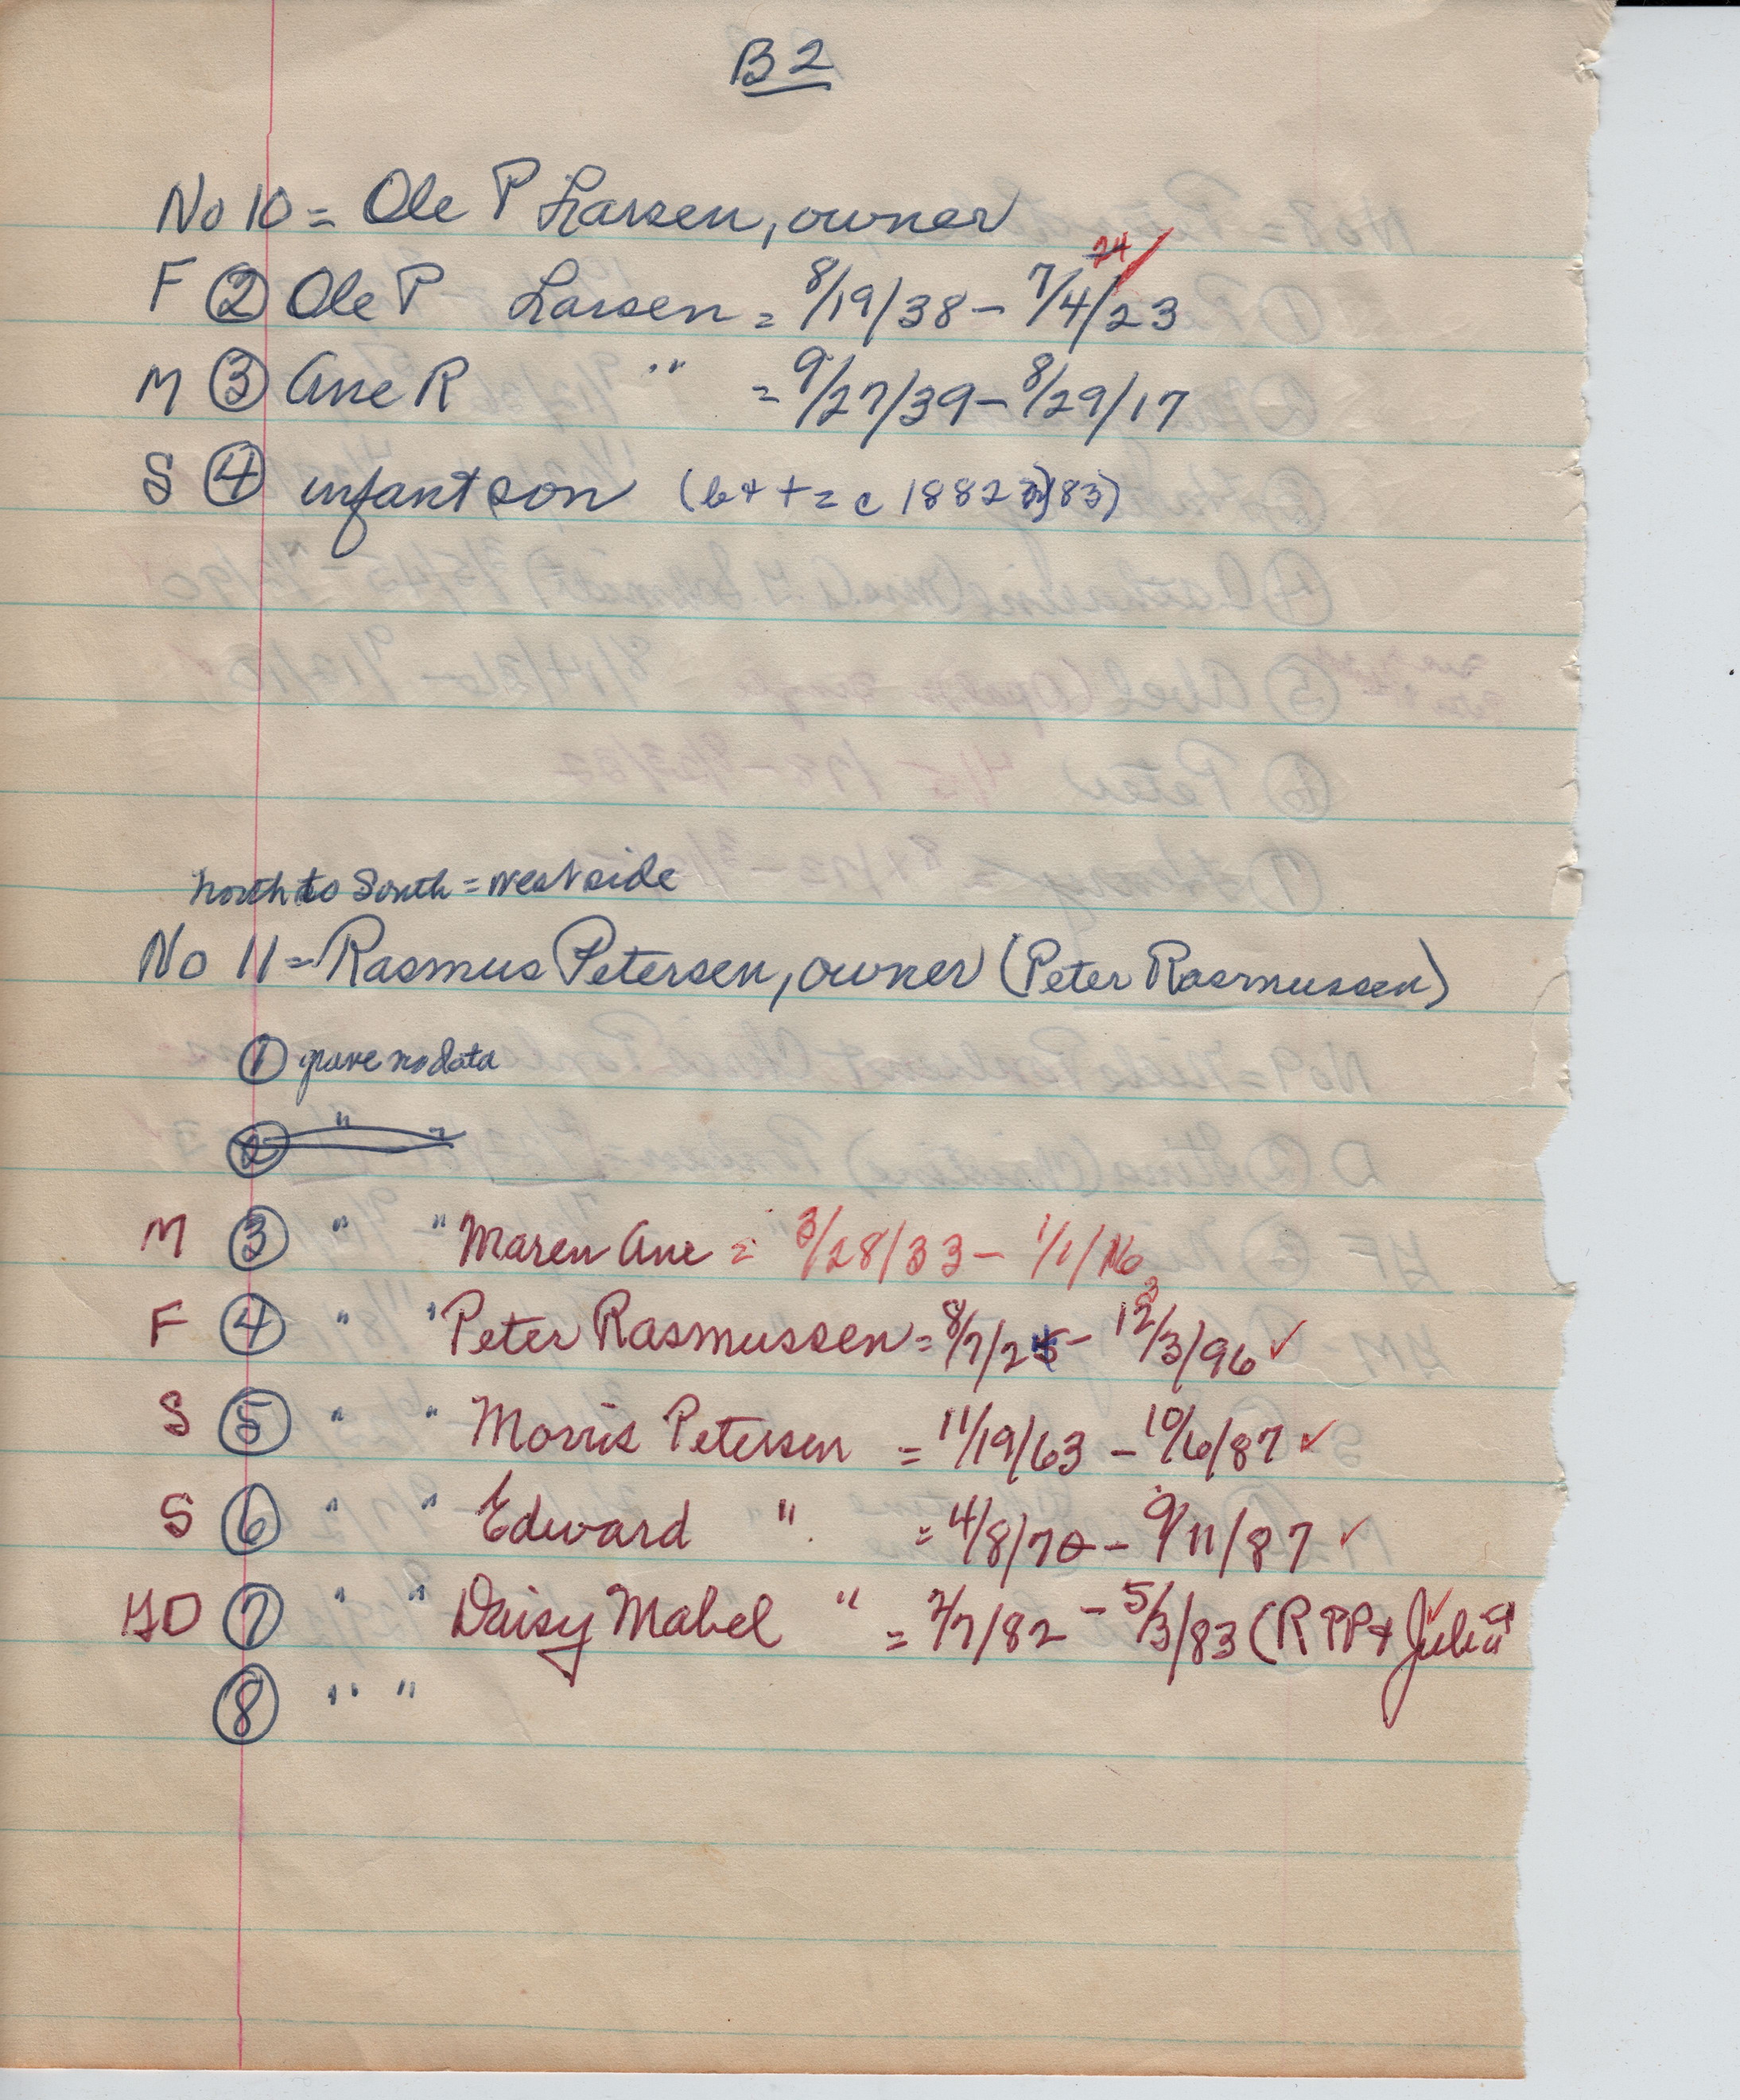 B2
No 10 = Ole P Larsen, owner
24
F ② Ole P Larsen = 8/19/38 - 7/4/23
M ③ Ane R " = 9/27/39 - 8/29/17
S ④ infant son (b + + = c 1882 83)
north to South = west side
No 11 = Rasmus Petersen, owner (Peter Rasmussen)
① grave no data
② "
M ③ " " Maren Ane = 3/28/33 - 1/1/
F ④ " " Peter Rasmussen = 8/7/25 - 12/3/96 ✓
S ⑤ " " Morris Petersen = 11/19/63 - 10/6/87 ✓
S ⑥ " " Edward " = 4/8/70 - 9/11/87 ✓
GD ⑦ " " Daisy Mabel " = 2/7/82 - 5/3/83 (R PP + Julia
⑧ " "